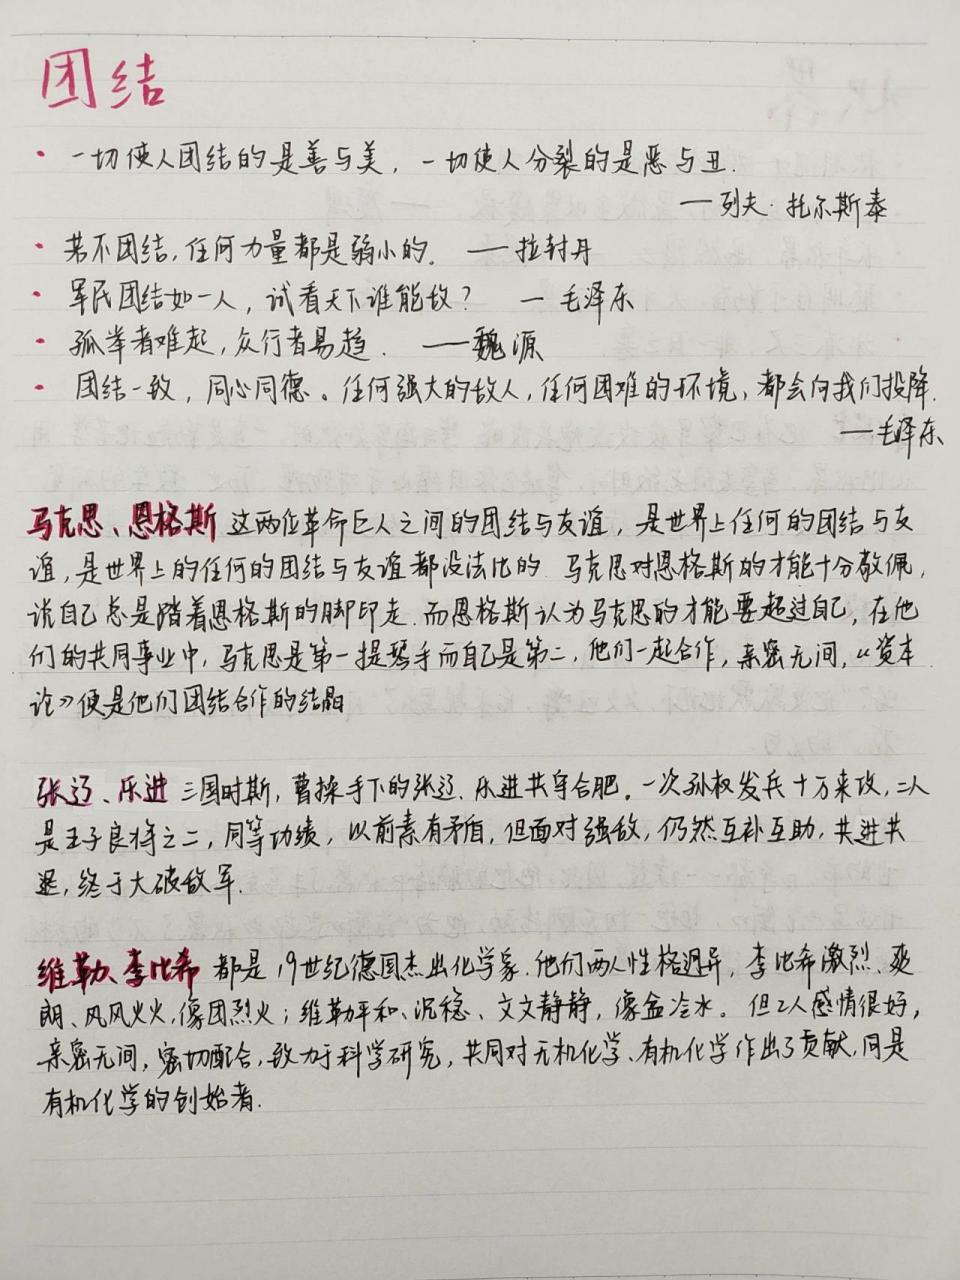 团结
· 一切使人团结的是善与美，一切使人分裂的是恶与丑.
——列夫·托尔斯泰
· 若不团结，任何力量都是弱小的。 ——拉封丹
· 军民团结如一人，试看天下谁能敌？ —毛泽东
· 孤举者难起，众行者易趋. ——魏源
· 团结一致，同心同德。任何强大的敌人，任何困难的环境，都会向我们投降.
——毛泽东
马克思、恩格斯 这两位革命巨人之间的团结与友谊，是世界上任何的团结与友
谊，是世界上的任何的团结与友谊都没法比的. 马克思对恩格斯的才能十分敬佩，
说自己总是踏着恩格斯的脚印走.而恩格斯认为马克思的才能要超过自己，在他
们的共同事业中，马克思是第一提琴手而自己是第二，他们一起合作，亲密无间，《资本
论》便是他们团结合作的结晶
张辽、乐进 三国时斯，曹操手下的张辽、乐进共守合肥。一次孙权发兵十万来攻，二人
是五子良将之二，同等功绩，以前素有矛盾，但面对强敌，仍然互补互助，共进共
退，终于大破敌军.
维勒、李比希 都是19世纪德国杰出化学家.他们两人性格迥异，李比希激烈、爽
朗、风风火火，像团烈火；维勒平和、沉稳、文文静静，像盆冷水。但2人感情很好，
亲密无间，密切配合，致力于科学研究，共同对无机化学、有机化学作出了贡献，同是
有机化学的创始者.